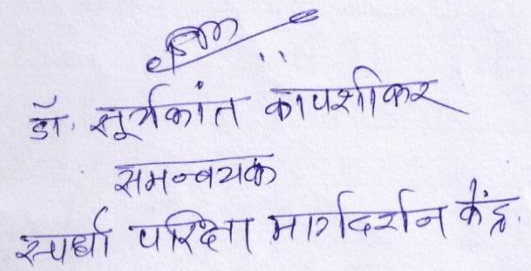 डॉ. सूर्यकांत कापशीकर
समन्वयक
स्पर्धा परिक्षा मार्गदर्शन केंद्र.